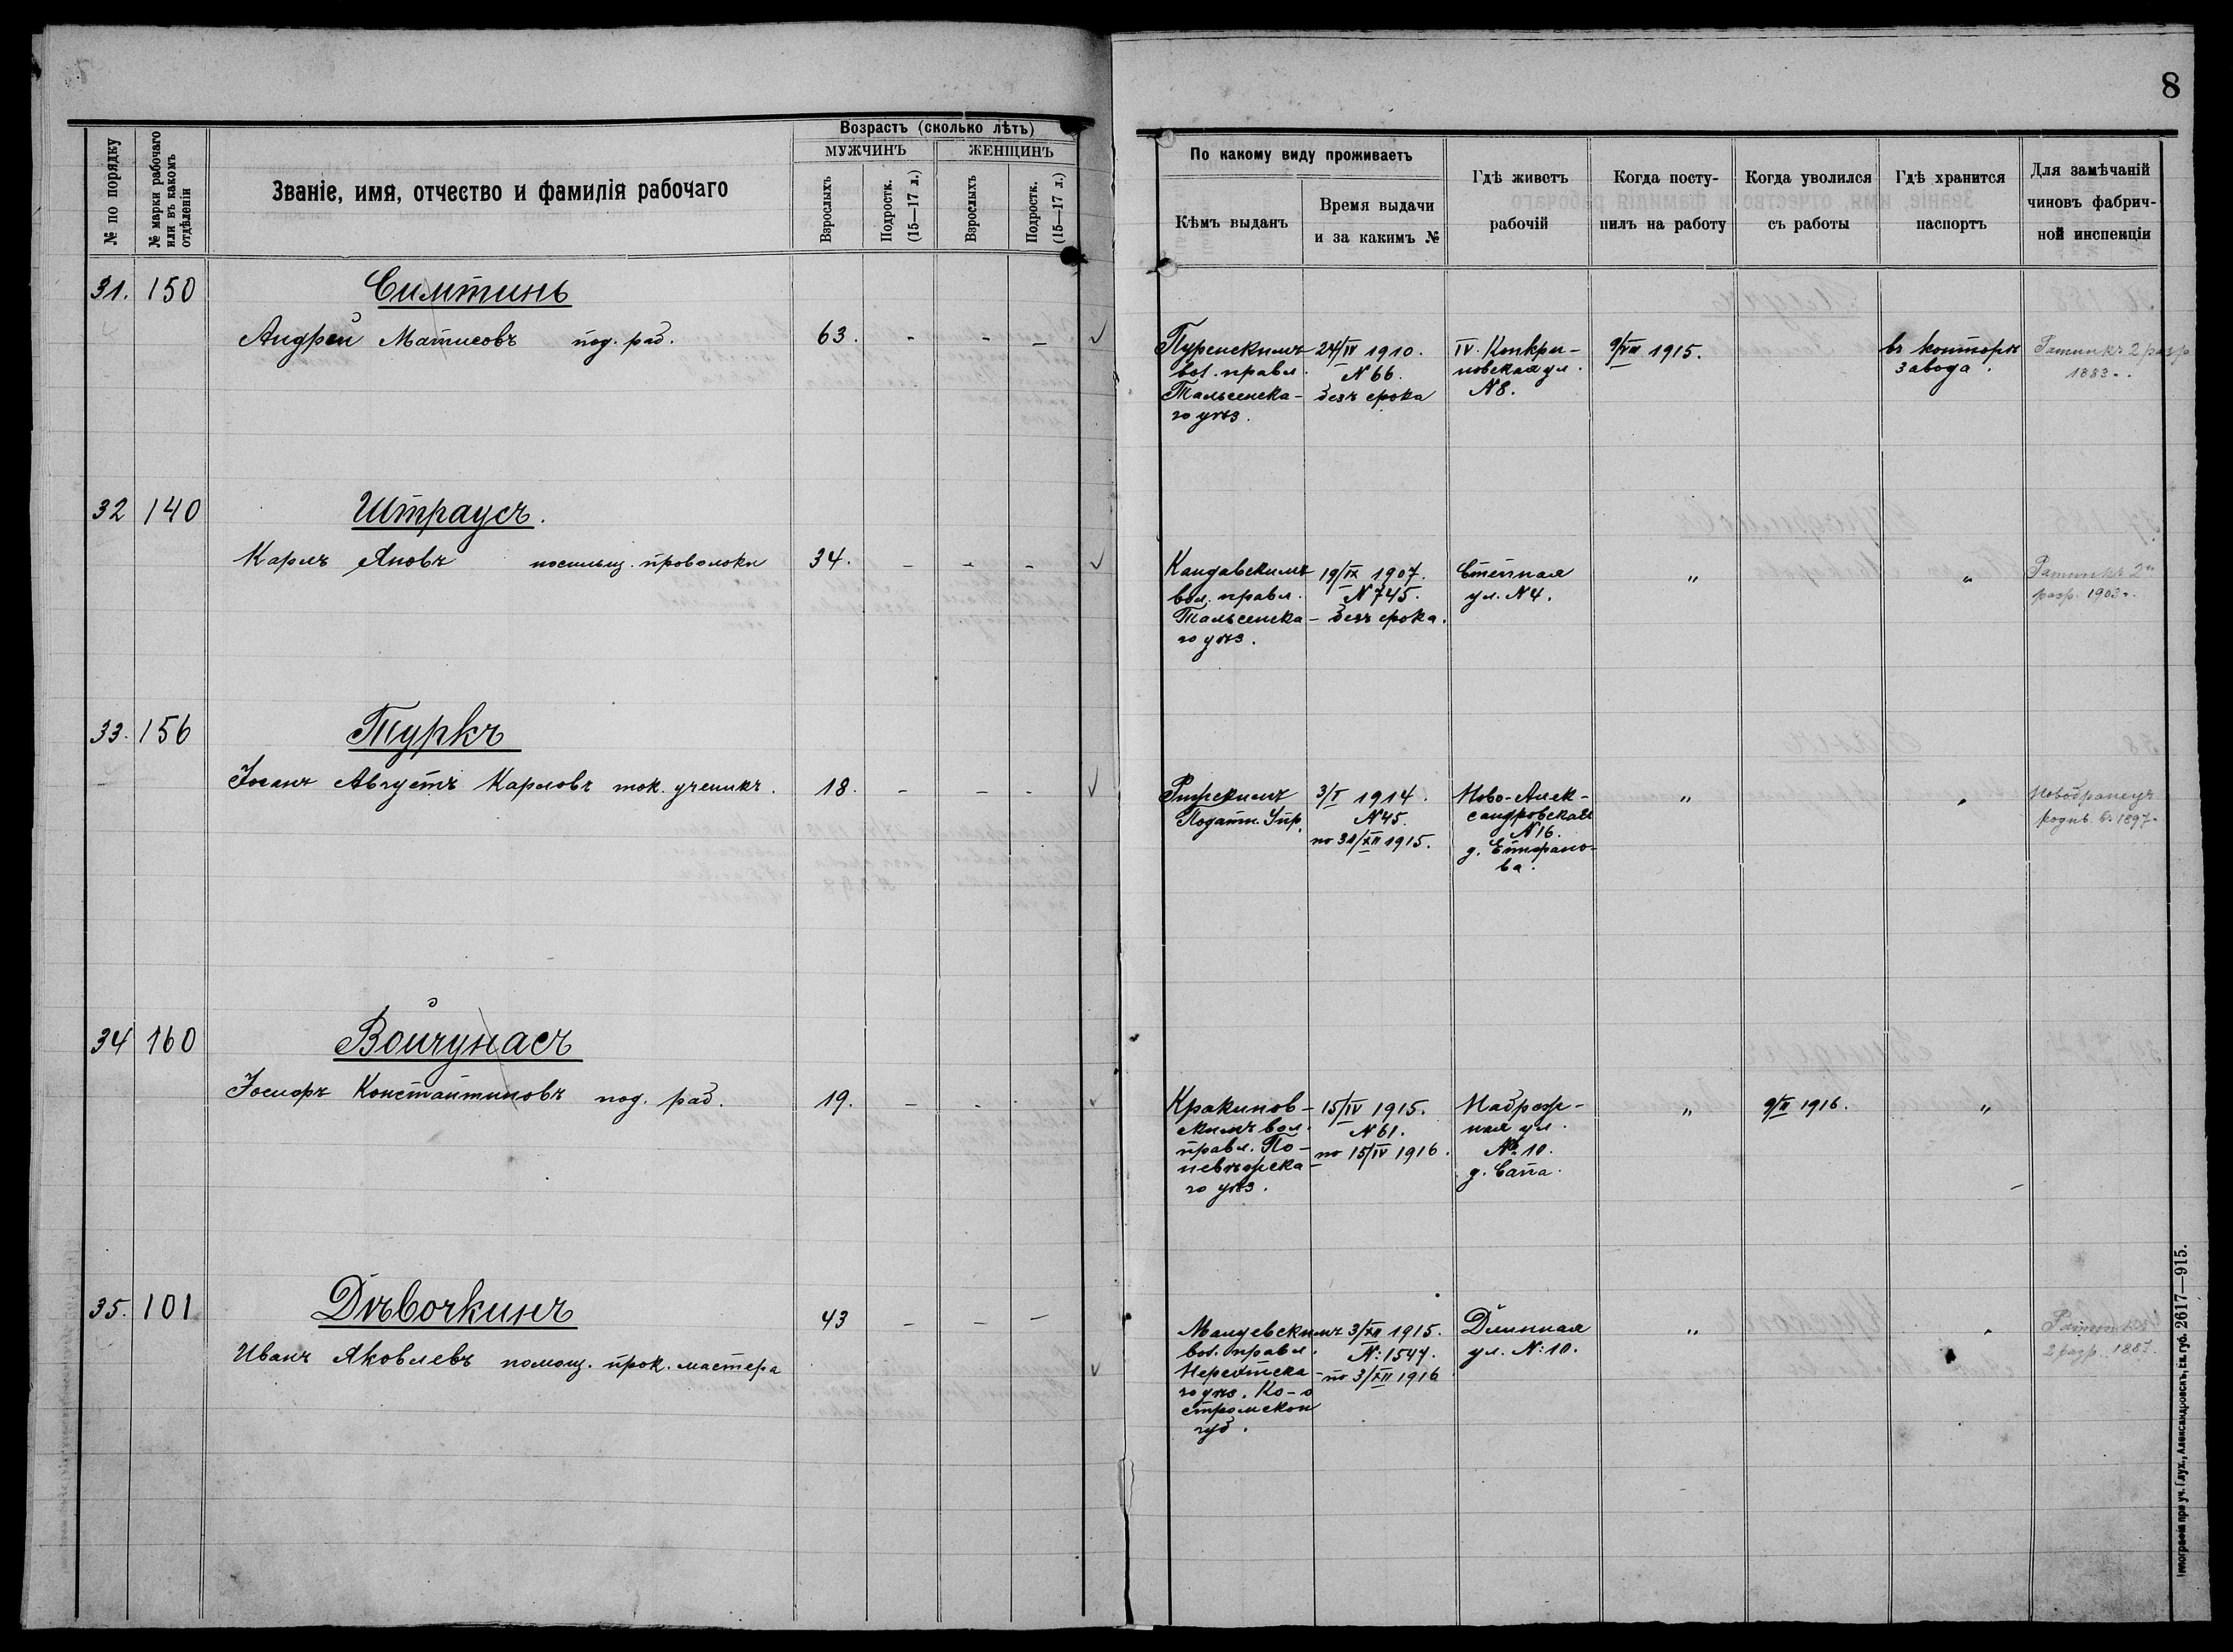 8
№ по порядку
№ марки рабочаго
или въ какомъ
отдѣленіи
Званіе, имя, отчество и фамилія рабочаго
Возрастъ (сколько лѣтъ)
МУЖЧИНЪ
ЖЕНЩИНЪ
Взрослыхъ
Подростк.
(15—17 л.)
Взрослыхъ
Подростк.
(15—17 л.)
По какому виду проживаетъ
Кѣмъ выданъ
Время выдачи
и за какимъ №
Гдѣ живетъ
рабочій
Когда посту-
пилъ на работу
Когда уволился
съ работы
Гдѣ хранится
паспортъ
Для замѣчаній
чиновъ фабрич-
ной инспекціи
31. 150
Симтинь
Андрей Матисовъ под. раб.
63. - - -
Пуренскимъ
вол. правл.
Тальсенска-
го уѣз.
24/IV 1910.
N 66.
безъ срока
IV.
новская ул.
N 8.
9/VIII 1915.
въ конторѣ
завода.
Ратникъ 2 разр
1883.
32 140
Штраусъ.
Карлъ Яновъ проволоки
34. - - -
Кандавскимъ
вол. правл.
Тальсенска-
го уѣз.
19/IX 1907.
N 745.
безъ срока.
Степная
ул. N 4.
"
"
Ратникъ 2
разр. 1903
33. 156
Туркъ
Іоганъ Августъ Карловъ ток. ученикъ.
18. - - -
Рижскимъ
Податн. Упр.
3/I 1914.
N 45.
по 31/XII 1915.
Ново-Алек-
сандровская
N 16.
"
"
Новобранецъ
1897
34 160
Войчунасъ
Іосифъ Константиновъ под. раб.
19. - - -
Кракинов-
скимъ вол.
правл. По-
невѣжска-
го уѣз.
15/IV 1915.
N 61.
по 15/IV 1916.
Набреж-
ная ул.
№ 10.
д. Сапа.
"
9/II 1916.
"
35. 101
Дѣвочкинъ
Иванъ Яковлевъ помощ. прок. мастера
43 - - -
вол. правл.
Нерехтска-
го уѣз. Ко-
стромской
губ.
3/XII 1915.
N: 1547.
по 3/XII 1916
Длинная
ул. N: 10.
"
"
Ратникъ
2 разр. 1887.
Типографія при уч. Глух., Александровскъ, Ек. губ. 2617—915.